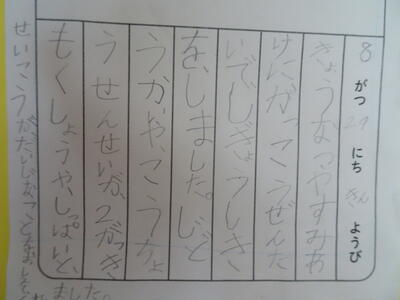 8がつ29にちきんようび
きょうなつやすみあ
けにがっこうぜんた
いでしぎょうしき
を、しました。しど
うかいや、こうちょ
うせんせいが、2がっき、
もくしょうや、しっぱいと、
せいこうが、だいじなことをおしえてくれ
ました。